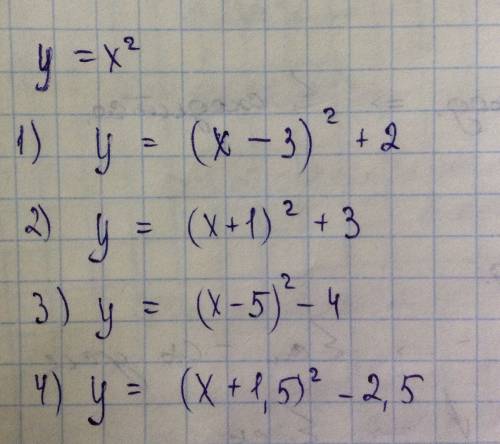 y = x²
1) y = (x - 3)² + 2
2) y = (x+1)² + 3
3) y = (x-5)² - 4
4) y = (x + 1,5)² - 2,5